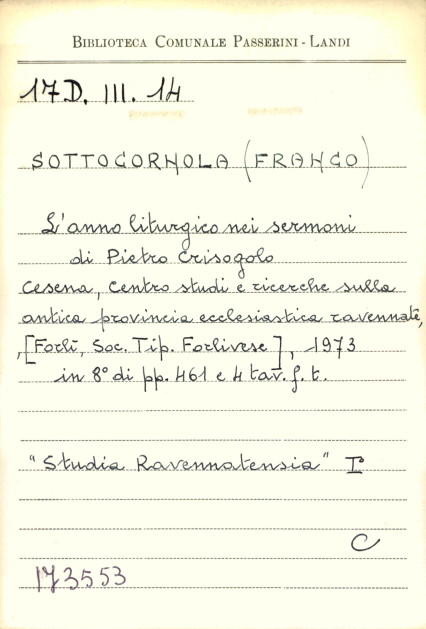 BIBLIOTECA COMUNALE PASSERINI - LANDI
17D. III. 14
SOTTOCORNOLA (FRANCO)
L'anno liturgico nei sermoni
di Pietro Crisogolo
Cesena, Centro studi e ricerche sulla
antica provincia ecclesiastica ravennate,
[Forlì, Soc. Tip. Forlivese], 1973
in 8° di pp. 461 e 4 tav. f. t.
"Studia Ravennatensia" I
C
173553